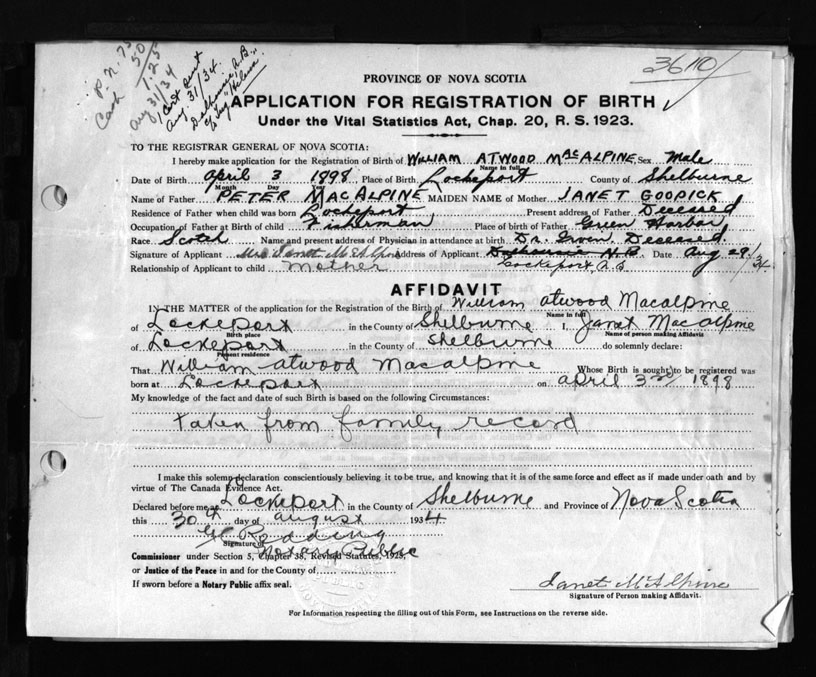 P.N. 75
Cash 50
1.25
Aug 31/34
1 Cert sent
Aug. 31/34.
Dalhousie, N.B.
3610
PROVINCE OF NOVA SCOTIA
APPLICATION FOR REGISTRATION OF BIRTH
Under the Vital Statistics Act, Chap. 20, R. S. 1923.
TO THE REGISTRAR GENERAL OF NOVA SCOTIA:
I hereby make application for the Registration of Birth of WILLIAM ATWOOD MACALPINE Sex Male
Name in full
Date of Birth April 3 1898 Place of Birth Lockeport County of Shelburne
Month Day Year
Name of Father PETER MACALPINE MAIDEN NAME of Mother JANET GOODICK
Residence of Father when child was born Lockeport Present address of Father Deceased
Occupation of Father at Birth of child Fisherman Place of birth of Father Green Harbor
Race Scotch Name and present address of Physician in attendance at birth Dr. Deceased
Signature of Applicant Mrs Janet McAlpine Address of Applicant Dalhousie N.B. Date Aug 29/34
Relationship of Applicant to child mother Lockeport
AFFIDAVIT
IN THE MATTER of the application for the Registration of the Birth of William atwood Macalpine
Name in full
of Lockeport in the County of Shelburne I, Janet Macalpine
Birth place Name of person making Affidavit
of Lockeport in the County of Shelburne do solemnly declare:
Present residence
That William atwood Macalpine Whose Birth is sought to be registered was
born at Lockeport on april 3rd 1898
My knowledge of the fact and date of such Birth is based on the following Circumstances:
taken from family record
I make this solemn declaration conscientiously believing it to be true, and knowing that it is of the same force and effect as if made under oath and by
virtue of The Canada Evidence Act.
Declared before me at Lockeport in the County of Shelburne and Province of Nova Scotia
this 30th day of august 1934.
Redding
Signature of
Notary Public
Commissioner under Section 5, Chapter 38, Revised Statutes, 1923,
or Justice of the Peace in and for the County of
If sworn before a Notary Public affix seal.
Janet McAlpine
Signature of Person making Affidavit.
For Information respecting the filling out of this Form, see Instructions on the reverse side.